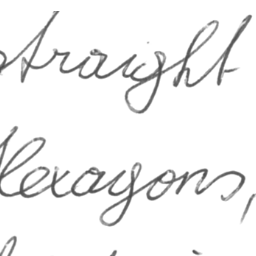 straight
Hexagons,